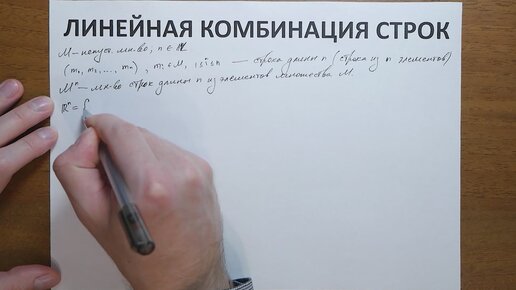 ЛИНЕЙНАЯ КОМБИНАЦИЯ СТРОК
M - непуст. мн-во, n ∈ ℕ
(m₁, m₂, ..., mₙ), mᵢ ∈ M, 1≤i≤n — строка длины n (строка из n элементов)
Mⁿ - мн-во строк длины n из элементов множества M.
ℝⁿ = {